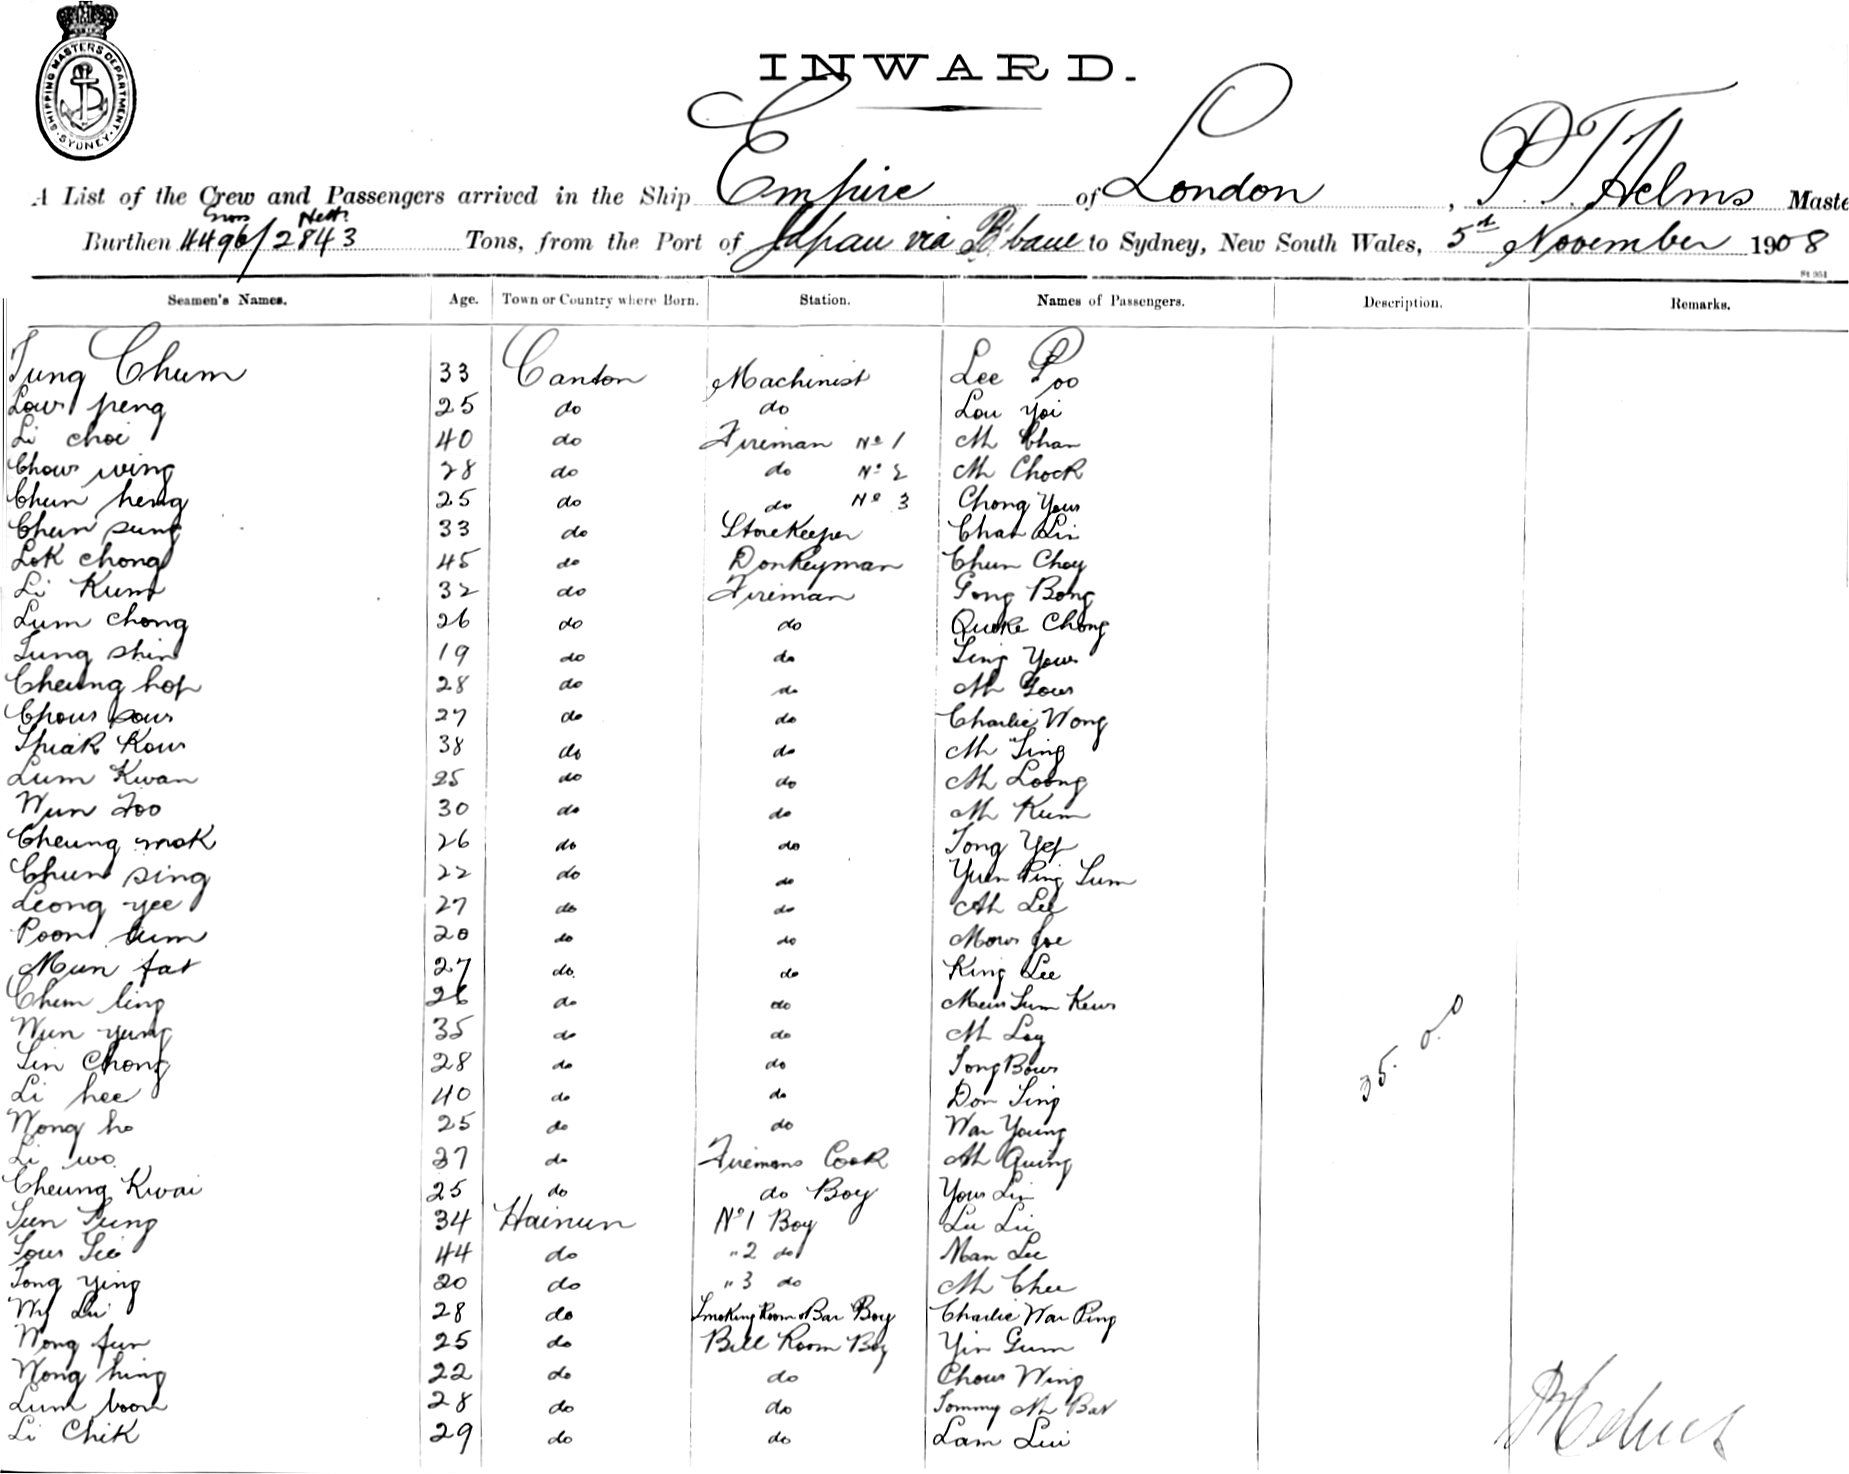 SHIPPING MASTERS DEPARTMENT
SYDNEY
INWARD.
A List of the Crew and Passengers arrived in the Ship Empire of London, P. T. Helms Maste
Gross Nett
Burthen 4496/2843 Tons, from the Port of Japan via B'bane to Sydney, New South Wales, 5th November 1908
Seamen's Names. Age. Town or Country where Born. Station. Names of Passengers. Description. Remarks.
Tung Chum 33 Canton Machinist Lee Poo
Low peng 25 do do Lou Yoi
Li choi 40 do Fireman No 1 Ah Chan
Chow wing 28 do do No 2 Ah Chock
Chun heng 25 do do No 3 Chong Yow
Chun sung 33 do Storekeeper Chan Lin
Lok chong 45 do Donkeyman Chun Choy
Li Kum 32 do Fireman Gong Bong
Lum chong 26 do do Quoke Chong
Tung shin 19 do do Ling Yow
Cheung hop 28 do do Ah Gow
Chow sow 27 do do Charlie Wong
38 do do Ah Ting
Lum Kwan 25 do do Ah Loong
Wun Foo 30 do do Ah Kum
Cheung mok 26 do do Tong Yep
Chun sing 22 do do Yuen Ping Sum
Leong yee 27 do do Ah Lee
Poon 20 do do Mow Joe
Mun fat 27 do do King Lee
Chum ling 26 do do Mew Sum Kew
Wun yung 35 do do Ah Loy
Lin Chong 28 do do Tong Bow
Li hee 40 do do Don Sing
Wong ho 25 do do War Young
Li wo 37 do Firemans Cook Ah Quing
Cheung Kwai 25 do do Boy Yow Lin
34 Hainun No 1 Boy Lu Lii
44 do " 2 do Man Lee
Tong Ying 20 do " 3 do Ah Chee
28 do Smoking Room & Bar Boy Charlie War Ping
Wong fun 25 do Bill Room Boy Yin Gum
Wong hing 22 do do Chow Wing
Lum boon 28 do do Tommy Ah Bat
Li Chik 29 do do Lam Lui
35. 0. 0
P T Helms